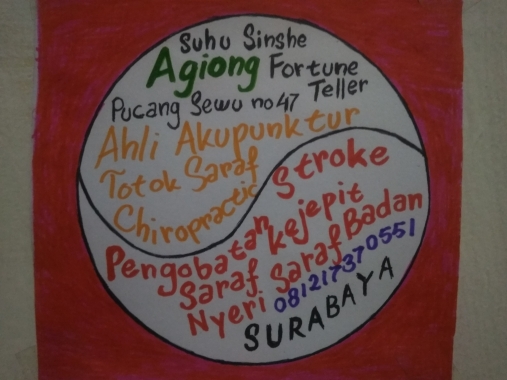 Suhu Sinshe
Agiong Fortune
Teller
Pucang Sewu no 47
Ahli Akupunktur
Totok Saraf
Chiropractic
Stroke
Pengobatan kejepit
Saraf Saraf Badan
Nyeri 081217370551
SURABAYA